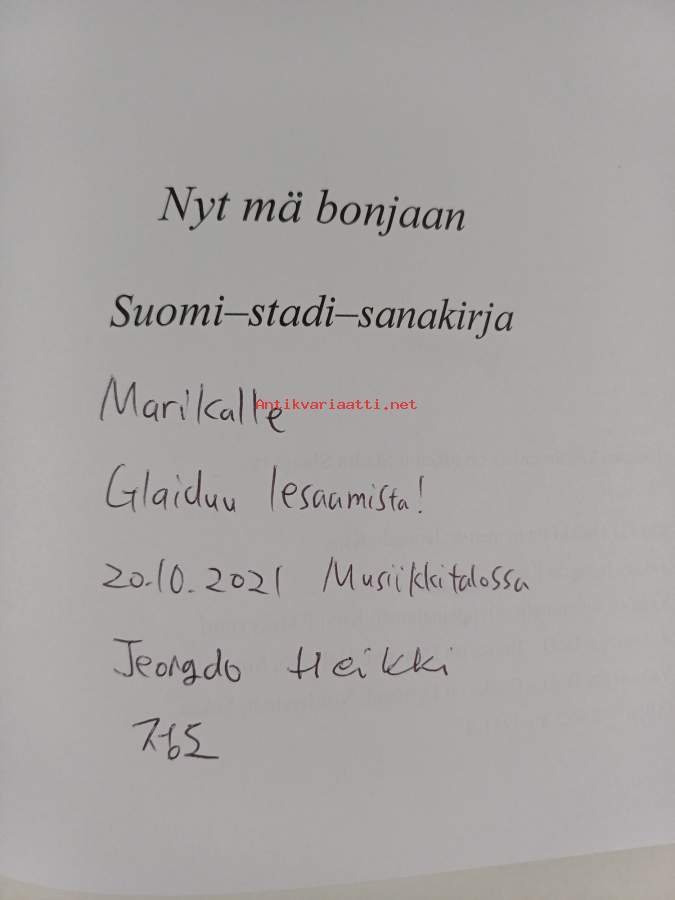 Nyt mä bonjaan
Suomi–stadi–sanakirja
Marikalle
Antikvariaatti.net
Glaiduu lesaamista!
20.10.2021 Musiikkitalossa
Jeongdo Heikki
정도